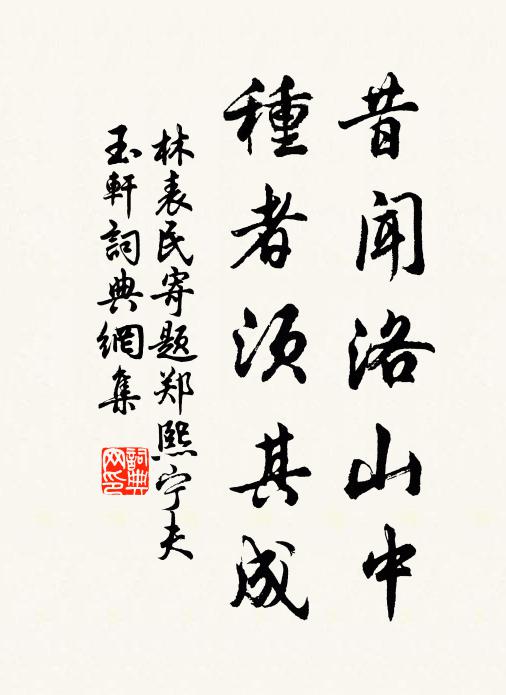 昔闻洛山中
種者须其成
林表民寄题郑熙宁夫
玉軒詞典網集
詞典
网印